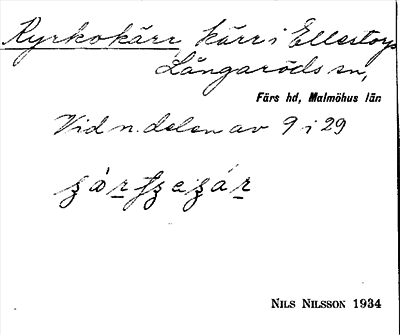 Kyrkokärr, kärr i Ellestorp
Långaröds sn,
Färs hd, Malmöhus län
Vid n. delen av 9 i 29
NILS NILSSON 1934